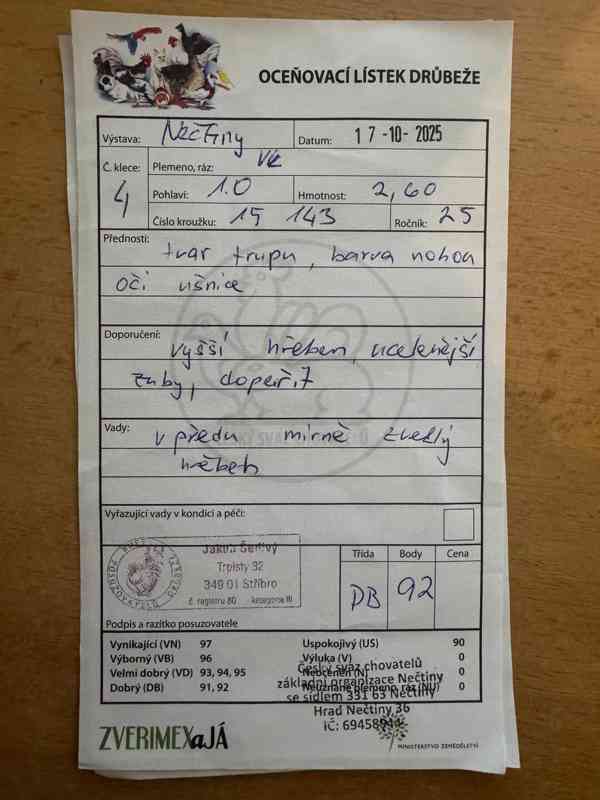 OCEŇOVACÍ LÍSTEK DRŮBEŽE
Výstava: Nečtiny Datum: 17-10-2025
Č. klece: 4
Plemeno, ráz: VK
Pohlaví: 1.0 Hmotnost: 2,60
Číslo kroužku: 19 143 Ročník: 25
Přednosti: tvar trupu, barva nohou
očí ušnice
Doporučení: vyšší hřeben, ucelenější
zuby, dopeřit
Vady: v předu mírně zvedlý
hřeben
Vyřazující vady v kondici a péči:
Jakub Šedivý
Trpísty 32
349 01 Stříbro
č. registru 80 kategorie III
Třída Body Cena
DB 92
Podpis a razítko posuzovatele
Vynikající (VN) 97 Uspokojivý (US) 90
Výborný (VB) 96 Výluka (V) 0
Velmi dobrý (VD) 93, 94, 95 Neoceněn (N) 0
Dobrý (DB) 91, 92 Neuznané plemeno, ráz (NU) 0
Český svaz chovatelů
základní organizace Nečtiny
se sídlem 331 63 Nečtiny
Hrad Nečtiny 36
ZVERIMEXaJÁ
MINISTERSTVO ZEMĚDĚLSTVÍ